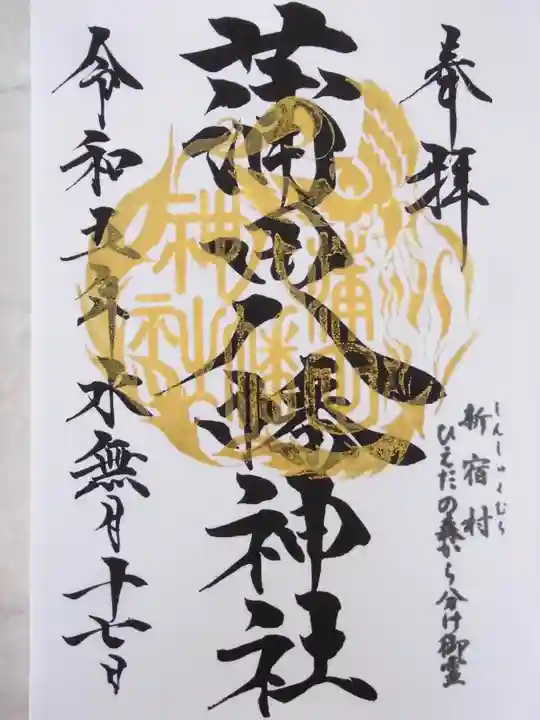 奉拝
しんしゅくむら
新宿村
ひえだの森から分け御霊
蒲田八幡神社
蒲田
八幡
神社
令和五年水無月十七日